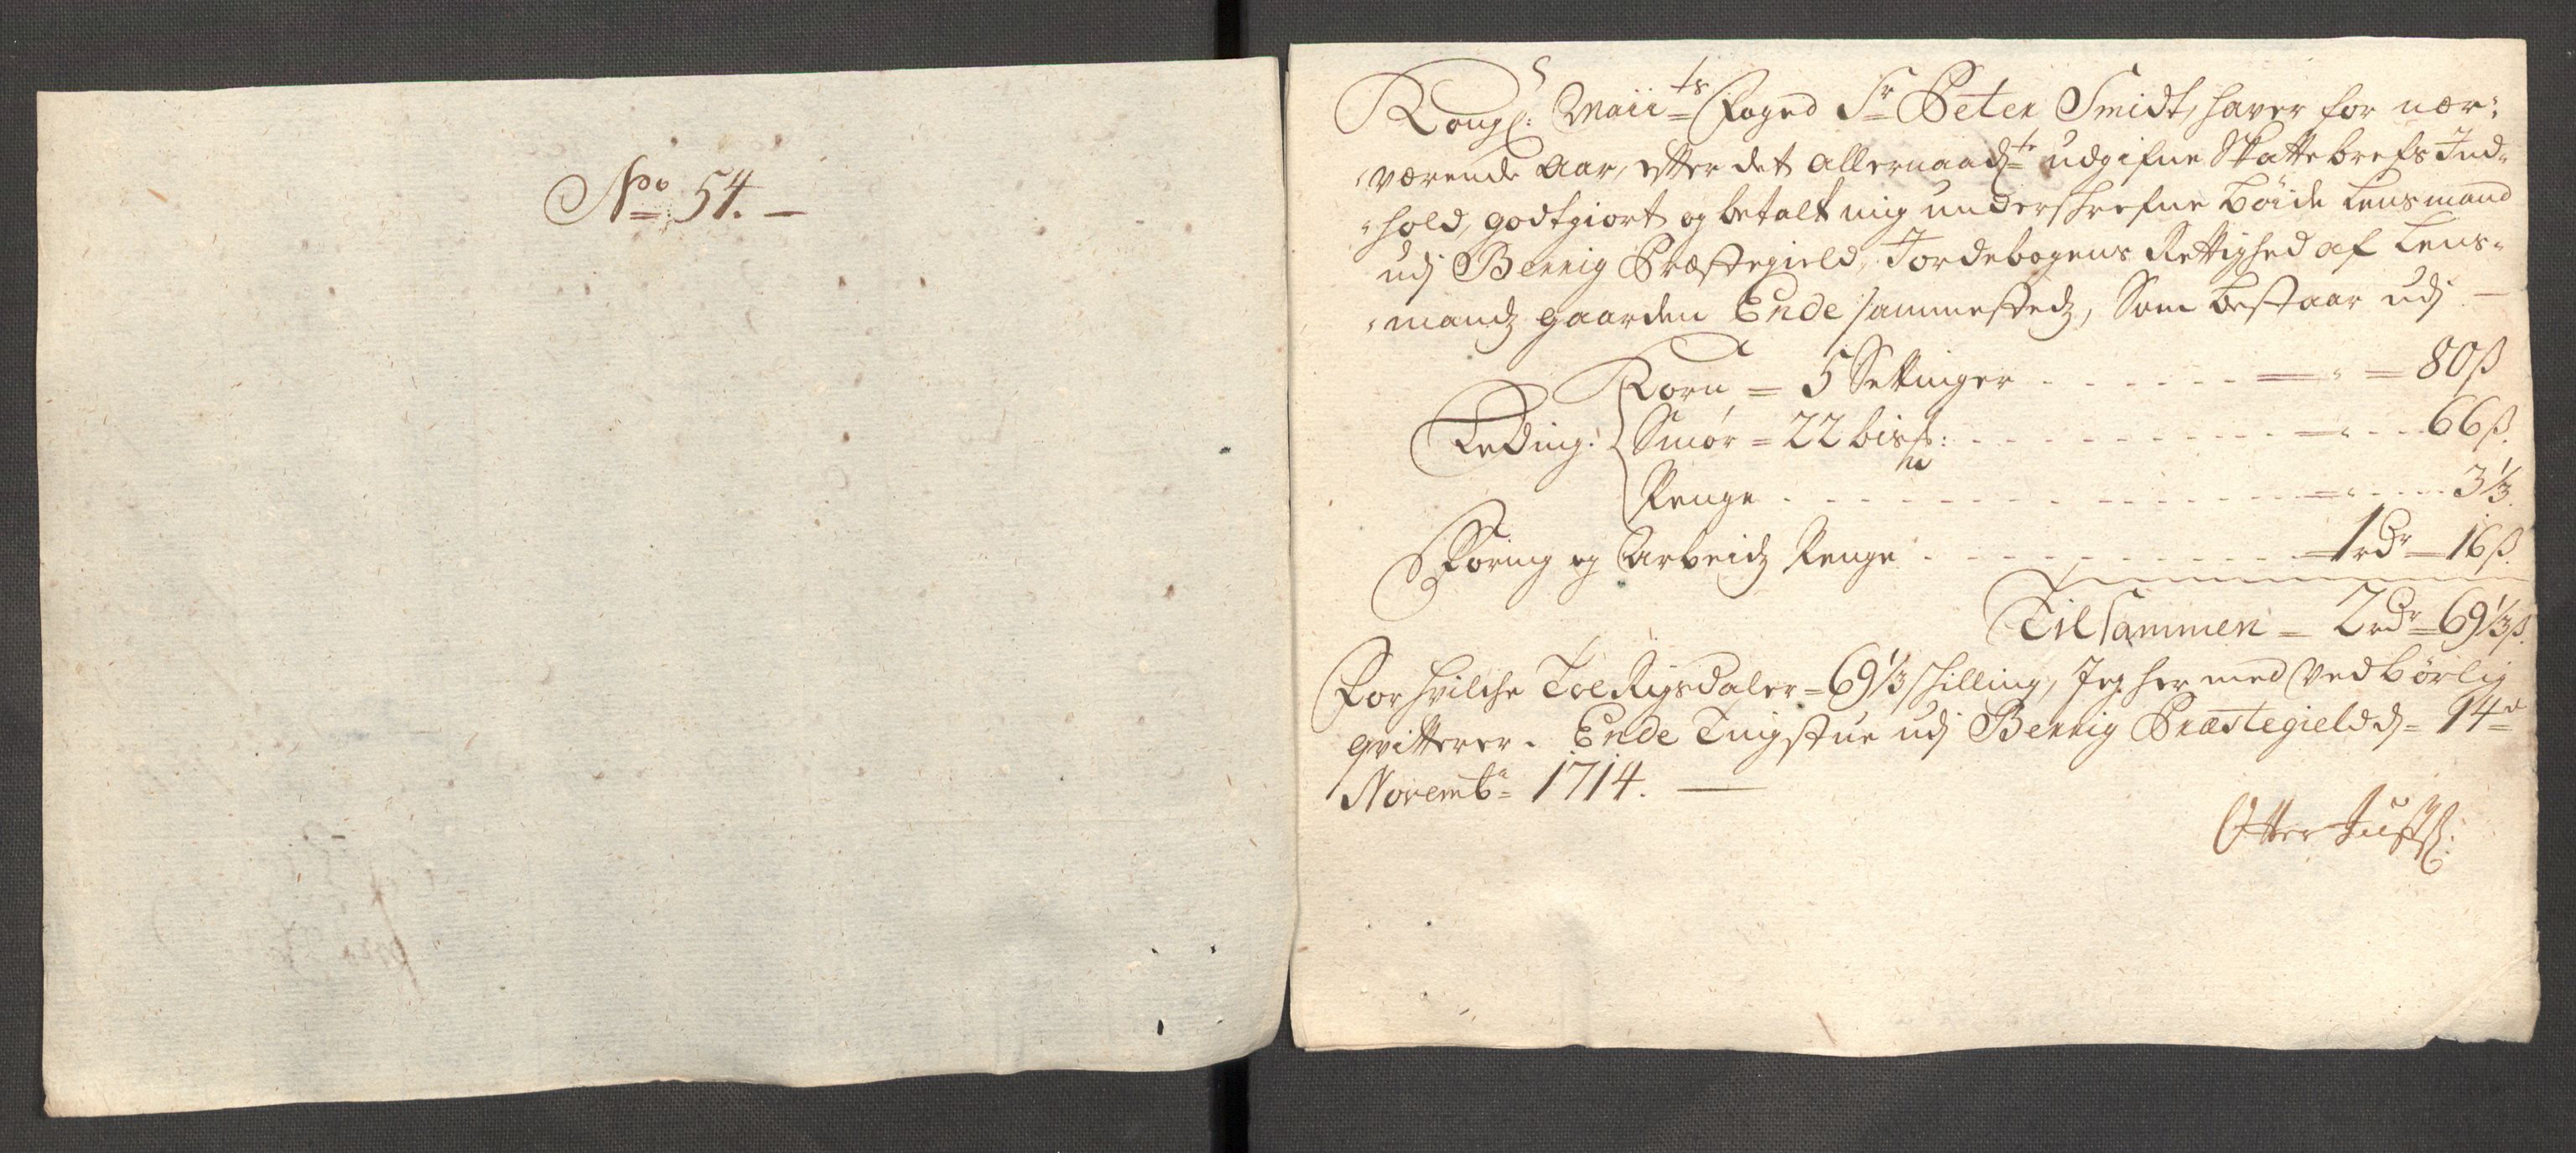 No: 54. —
Kongl: Maiits Foged Sr Peter Smidt, haver for nær-
værende Aar, efter det allernaadte udgifne Skatte brefs Ind-
hold, godtgiort og betalt mig underschrefne bøide Lensmand
udj Bervig Præstegield, Jordebogens Rettighed af Lens-
mandz gaarden Ende sammestedz, Som bestaar udj —
Korn = 5 Settinger - - - - - - = - = 80 ß
Leding: Smør = 22 - - - - - - 66 ß.
Penge - - - - - - 3 1/3.
Foring og Arbeidz Penge - - - - - - 1 rdr = 16 ß.
Tilsammen = 2 rdr = 69 1/3 ß.
For hvilche Toe Rigsdaler = 69 1/3 schilling, Jeg her med ved børlig
qvitterer. Ende Tingstue udj Bervig Præstegield d = 14 de
Novembr = 1714. —
Otter